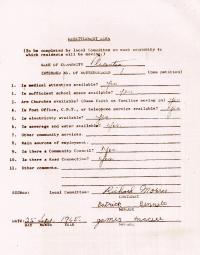 RESETTLEMENT AREA
(To be completed by local Committee in each community to which residents will be moving.)
NAME OF COMMUNITY Placentia
ESTIMATED NO. OF HOUSEHOLDERS 1 (See petition)
1. Is medical attention available? Yes
2. Is sufficient school space available? Yes
3. Are Churches available? (Name Faith or families moving in) Yes
4. Is Post Office, C.N.T., or telephone service available? Yes
5. Is electricity available? Yes
6. Is sewerage and water available? Yes
7. Other community services.
8. Main sources of employment.
9. Is there a Community Council? Yes
10. Is there a Road Connection? Yes
11. Other comments.
SIGNED: Local Committee: Richard Morris
Patrick
James
DATE: 25 Sept. 1965
DAY MONTH YEAR